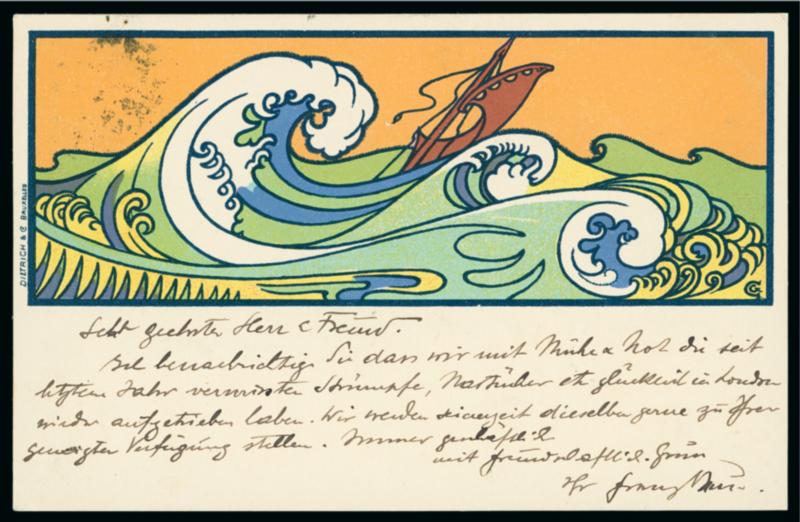 DIETRICH & Cº BRUXELLES
GC
Sehr geehrter Herr & Freund.
Ich benachrichtige Sie dass wir mit Mühe & Not die seit
letztem Jahr vermissten Strümpfe, Nastücher etc glücklich in London
wieder aufgetrieben haben. Wir werden seinerzeit dieselben gerne zu Ihrer
geneigten Verfügung stellen. Immer
mit freundschaftl. Gruss
Ihr Franz